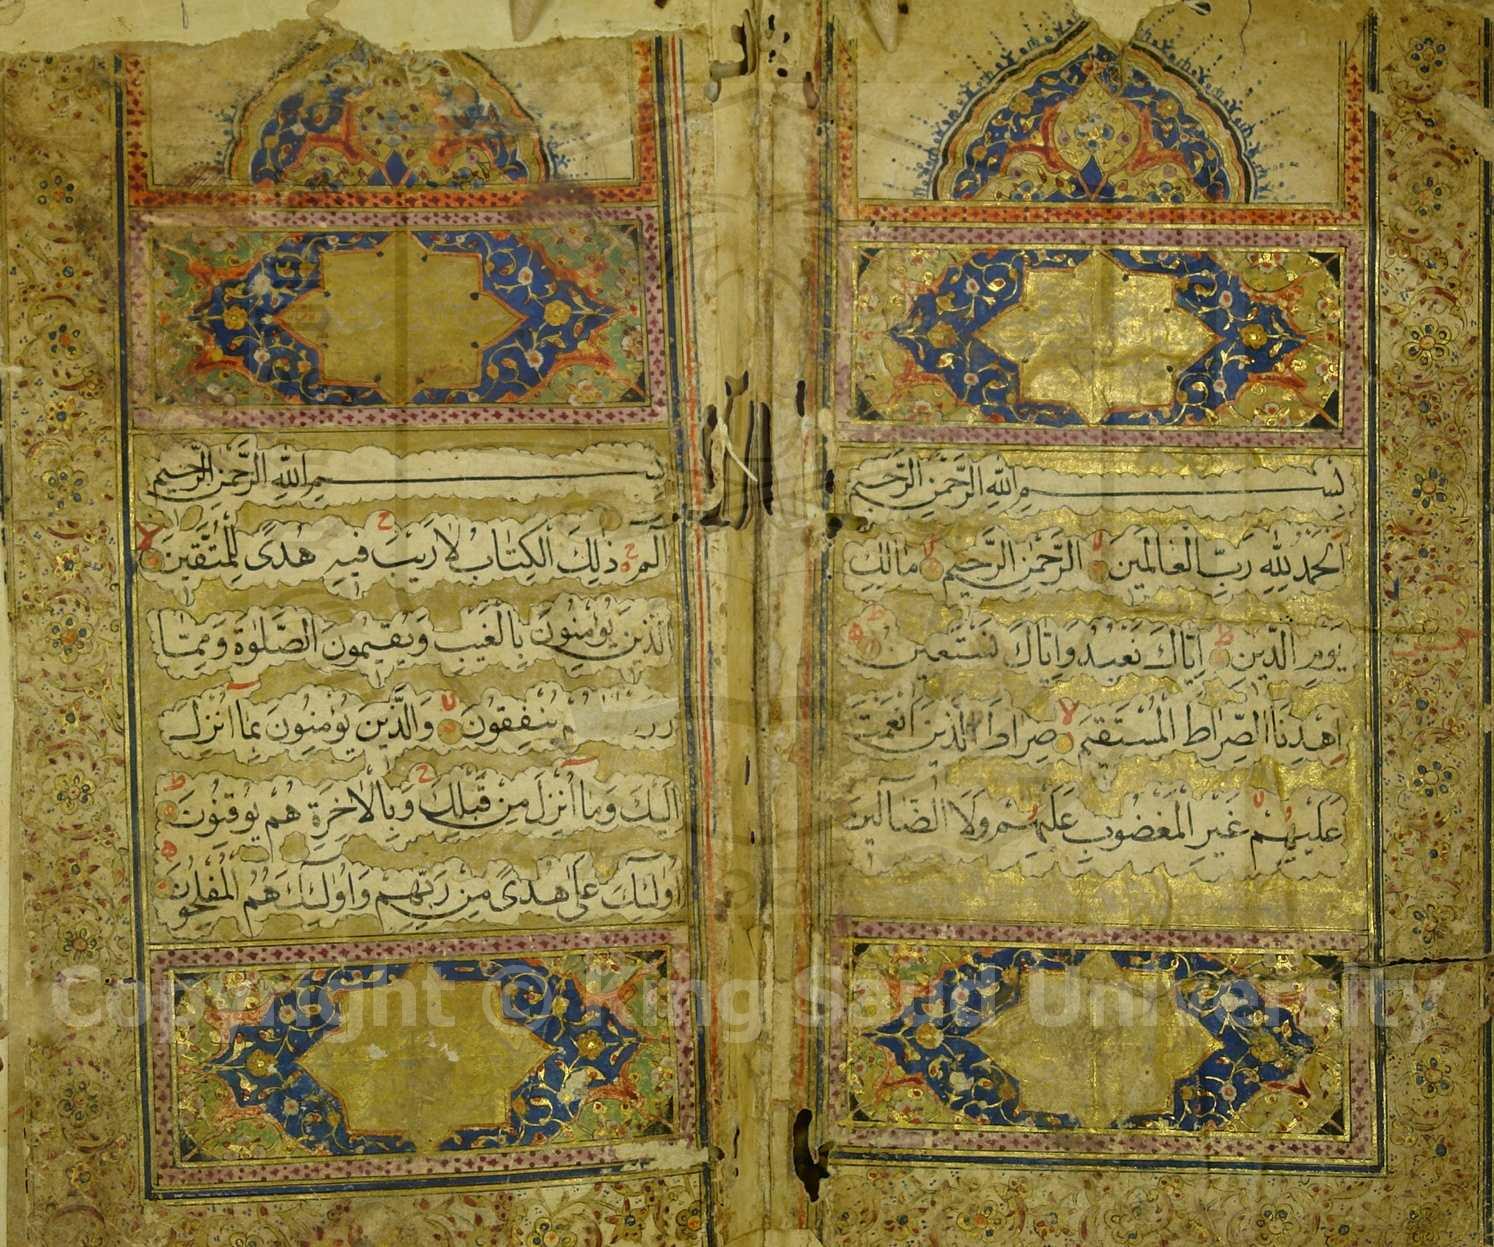 بِسْمِ اللهِ الرَّحْمٰنِ الرَّحِيمِ
اَلْحَمْدُ لِلّٰهِ رَبِّ الْعَالَمِينَ الرَّحْمٰنِ الرَّحِيمِ مَالِكِ
يَوْمِ الدِّينِ اِيَّاكَ نَعْبُدُ وَاِيَّاكَ نَسْتَعِينُ
اِهْدِنَا الصِّرَاطَ الْمُسْتَقِيمَ صِرَاطَ الَّذِينَ اَنْعَمْتَ
عَلَيْهِمْ غَيْرِ الْمَغْضُوبِ عَلَيْهِمْ وَلَا الضَّالِّينَ
بِسْمِ اللهِ الرَّحْمٰنِ الرَّحِيمِ
الٓمٓ ذٰلِكَ الْكِتَابُ لَا رَيْبَ فِيهِ هُدًى لِلْمُتَّقِينَ
الَّذِينَ يُؤْمِنُونَ بِالْغَيْبِ وَيُقِيمُونَ الصَّلٰوةَ وَمِمَّا
يُنْفِقُونَ وَالَّذِينَ يُؤْمِنُونَ بِمَآ اُنْزِلَ
اِلَيْكَ وَمَآ اُنْزِلَ مِنْ قَبْلِكَ وَبِالْاٰخِرَةِ هُمْ يُوقِنُونَ
اُولٰٓئِكَ عَلٰى هُدًى مِنْ رَبِّهِمْ وَاُولٰٓئِكَ هُمُ الْمُفْلِحُونَ
Copyright © King Saud University